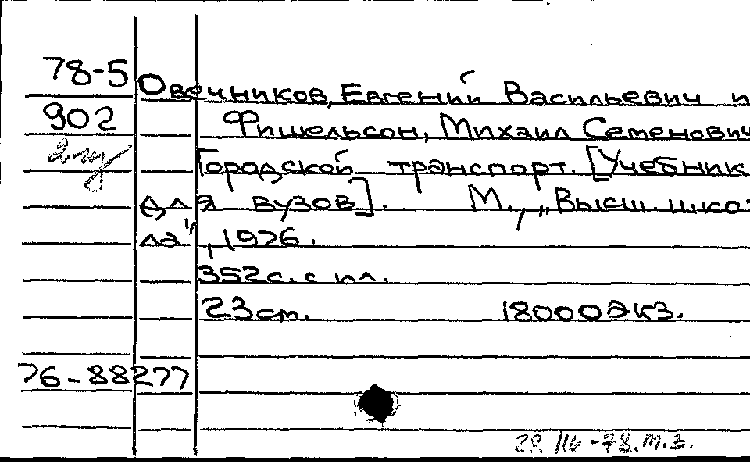 78-5
Овечников, Евгений Васильевич и
902
Фишельсон, Михаил Семенович
Городской транспорт. [Учебник
для вузов]. М., „Высш. шко-
ла", 1976.
352 с. с ил.
23 см. 18000 экз.
76-88277